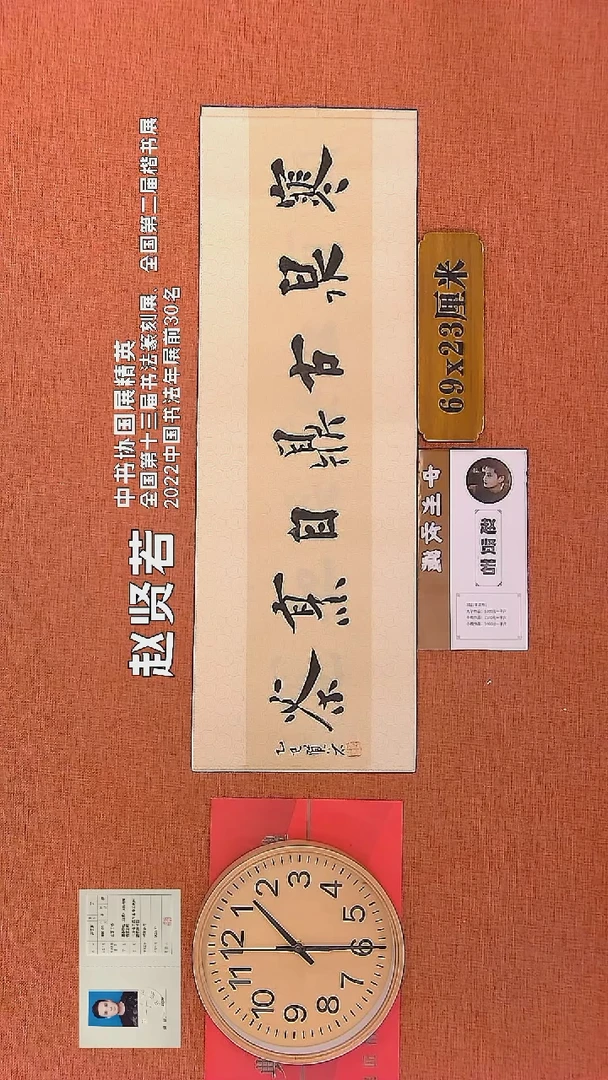 赵贤若
中书协国展精英
全国第十三届书法篆刻展、全国第二届楷书展
2022中国书法年展前30名
寒泉古鼎自煮茶
乙巳贤若
69x23厘米
12
1
2
3
4
5
6
7
8
9
10
11